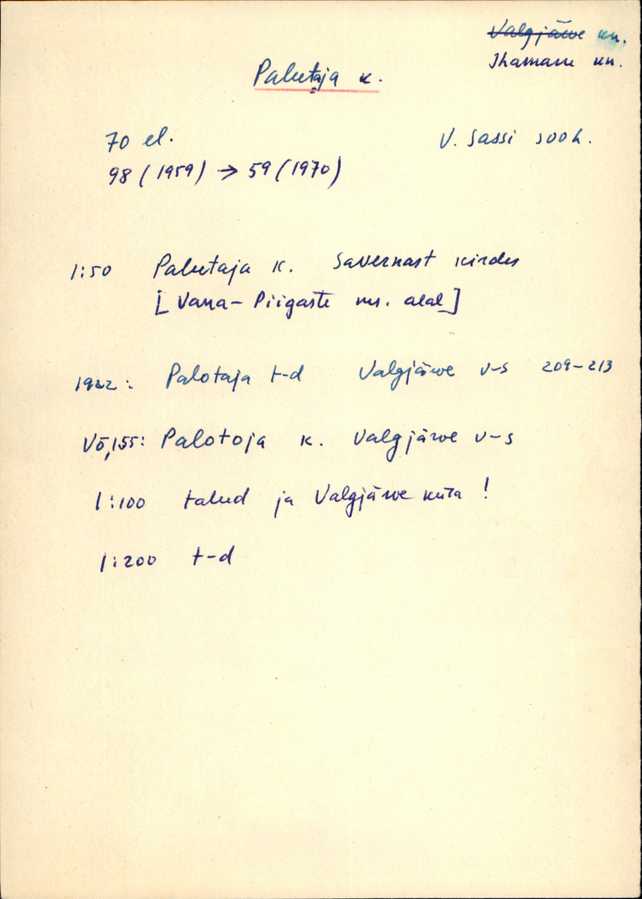 Valgjärve kn.
Ihamaru kn.
Palutaja k.
70 el.
V. Sassi sooh.
98 (1959) → 59 (1970)
1:50 Palutaja k. Savernast kirdes
[Vana-Piigaste ms. alal]
1922: Palotaja t-d Valgjärwe v-s 209-213
Võ,155: Palotoja k. Valgjärwe v-s
1:100 talud ja Valgjärwe küla!
1:200 t-d